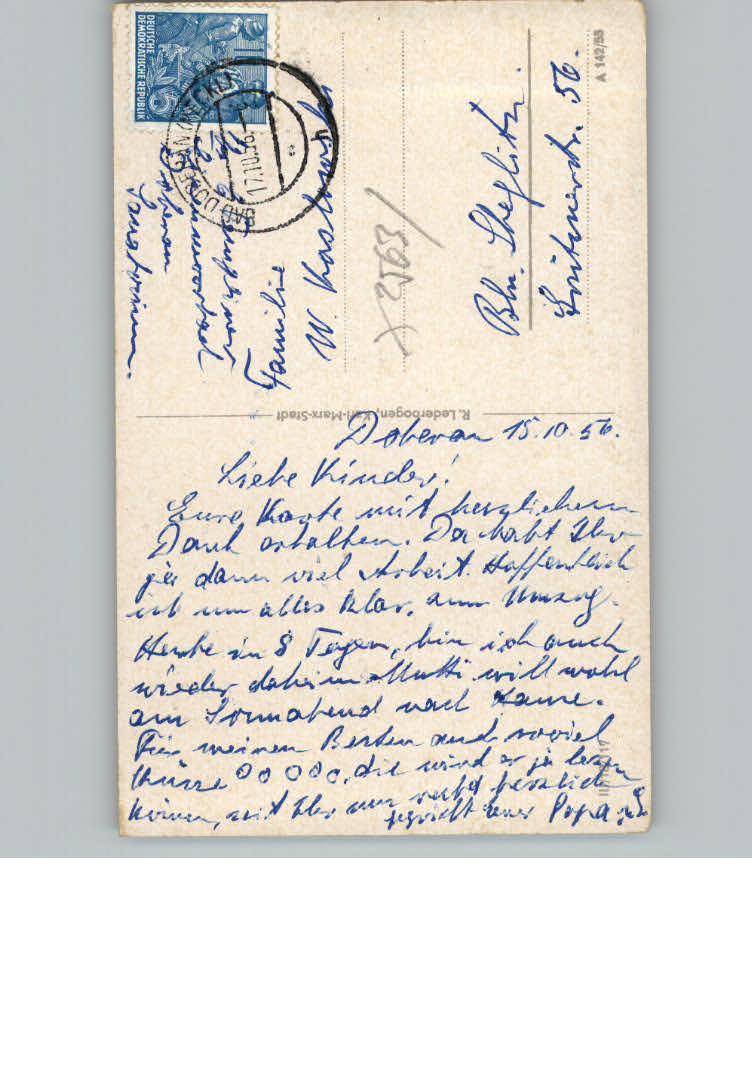 Doberan 15.10.56.
Liebe Kinder!
Eure Karte mit herzlichem
Dank erhalten. Da habt Ihr
ja dann viel Arbeit. Hoffentlich
ist nun alles klar, zum Umzug.
Heute in 8 Tagen, bin ich auch
wieder daheim Mutti will wohl
am Sonnabend nach Hause.
Für meinen Besten auch soviel
Küsse OO OOO, die wird er ja lesen
können, seit Ihr nun recht herzlich
gegrüßt euer Papa
R. Lederbogen, Karl-Marx-Stadt
Familie
W.
Bln. Steglitz.
56.
Doberan
Sanatorium.
X 2563/
DEUTSCHE
DEMOKRATISCHE REPUBLIK
5
BAD DOBERAN (MECKL)
17.10.56
A 142/55